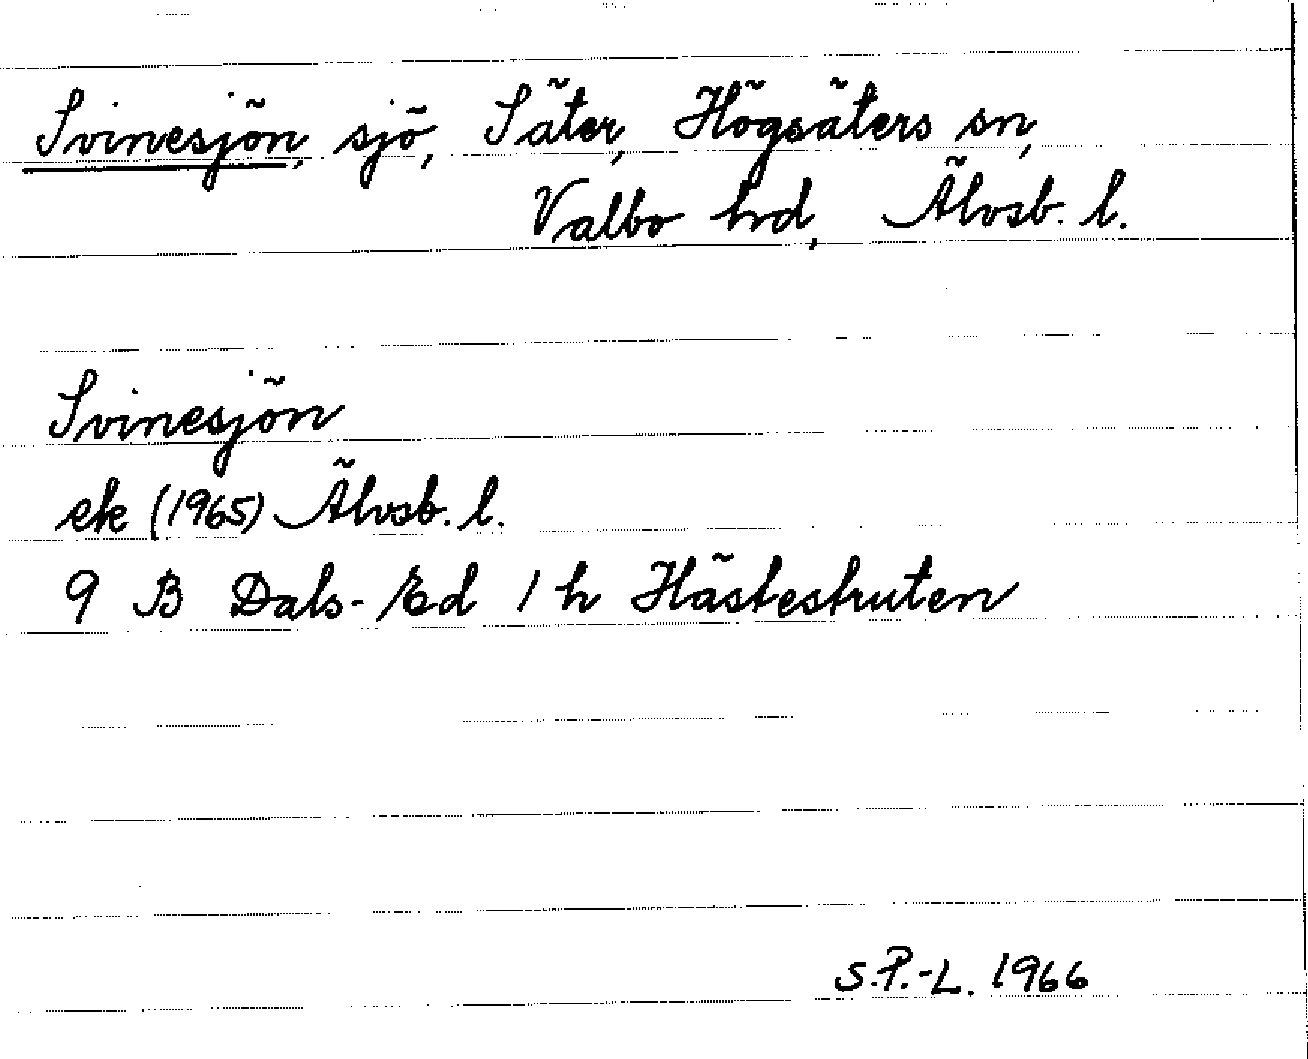 Svinesjön, sjö, Säter, Högsäters sn,
Valbo hd, Älvsb. l.
Svinesjön
ek (1965) Älvsb. l.
9 B Dals-Ed 1 h Hästestruten
S.P.-L. 1966